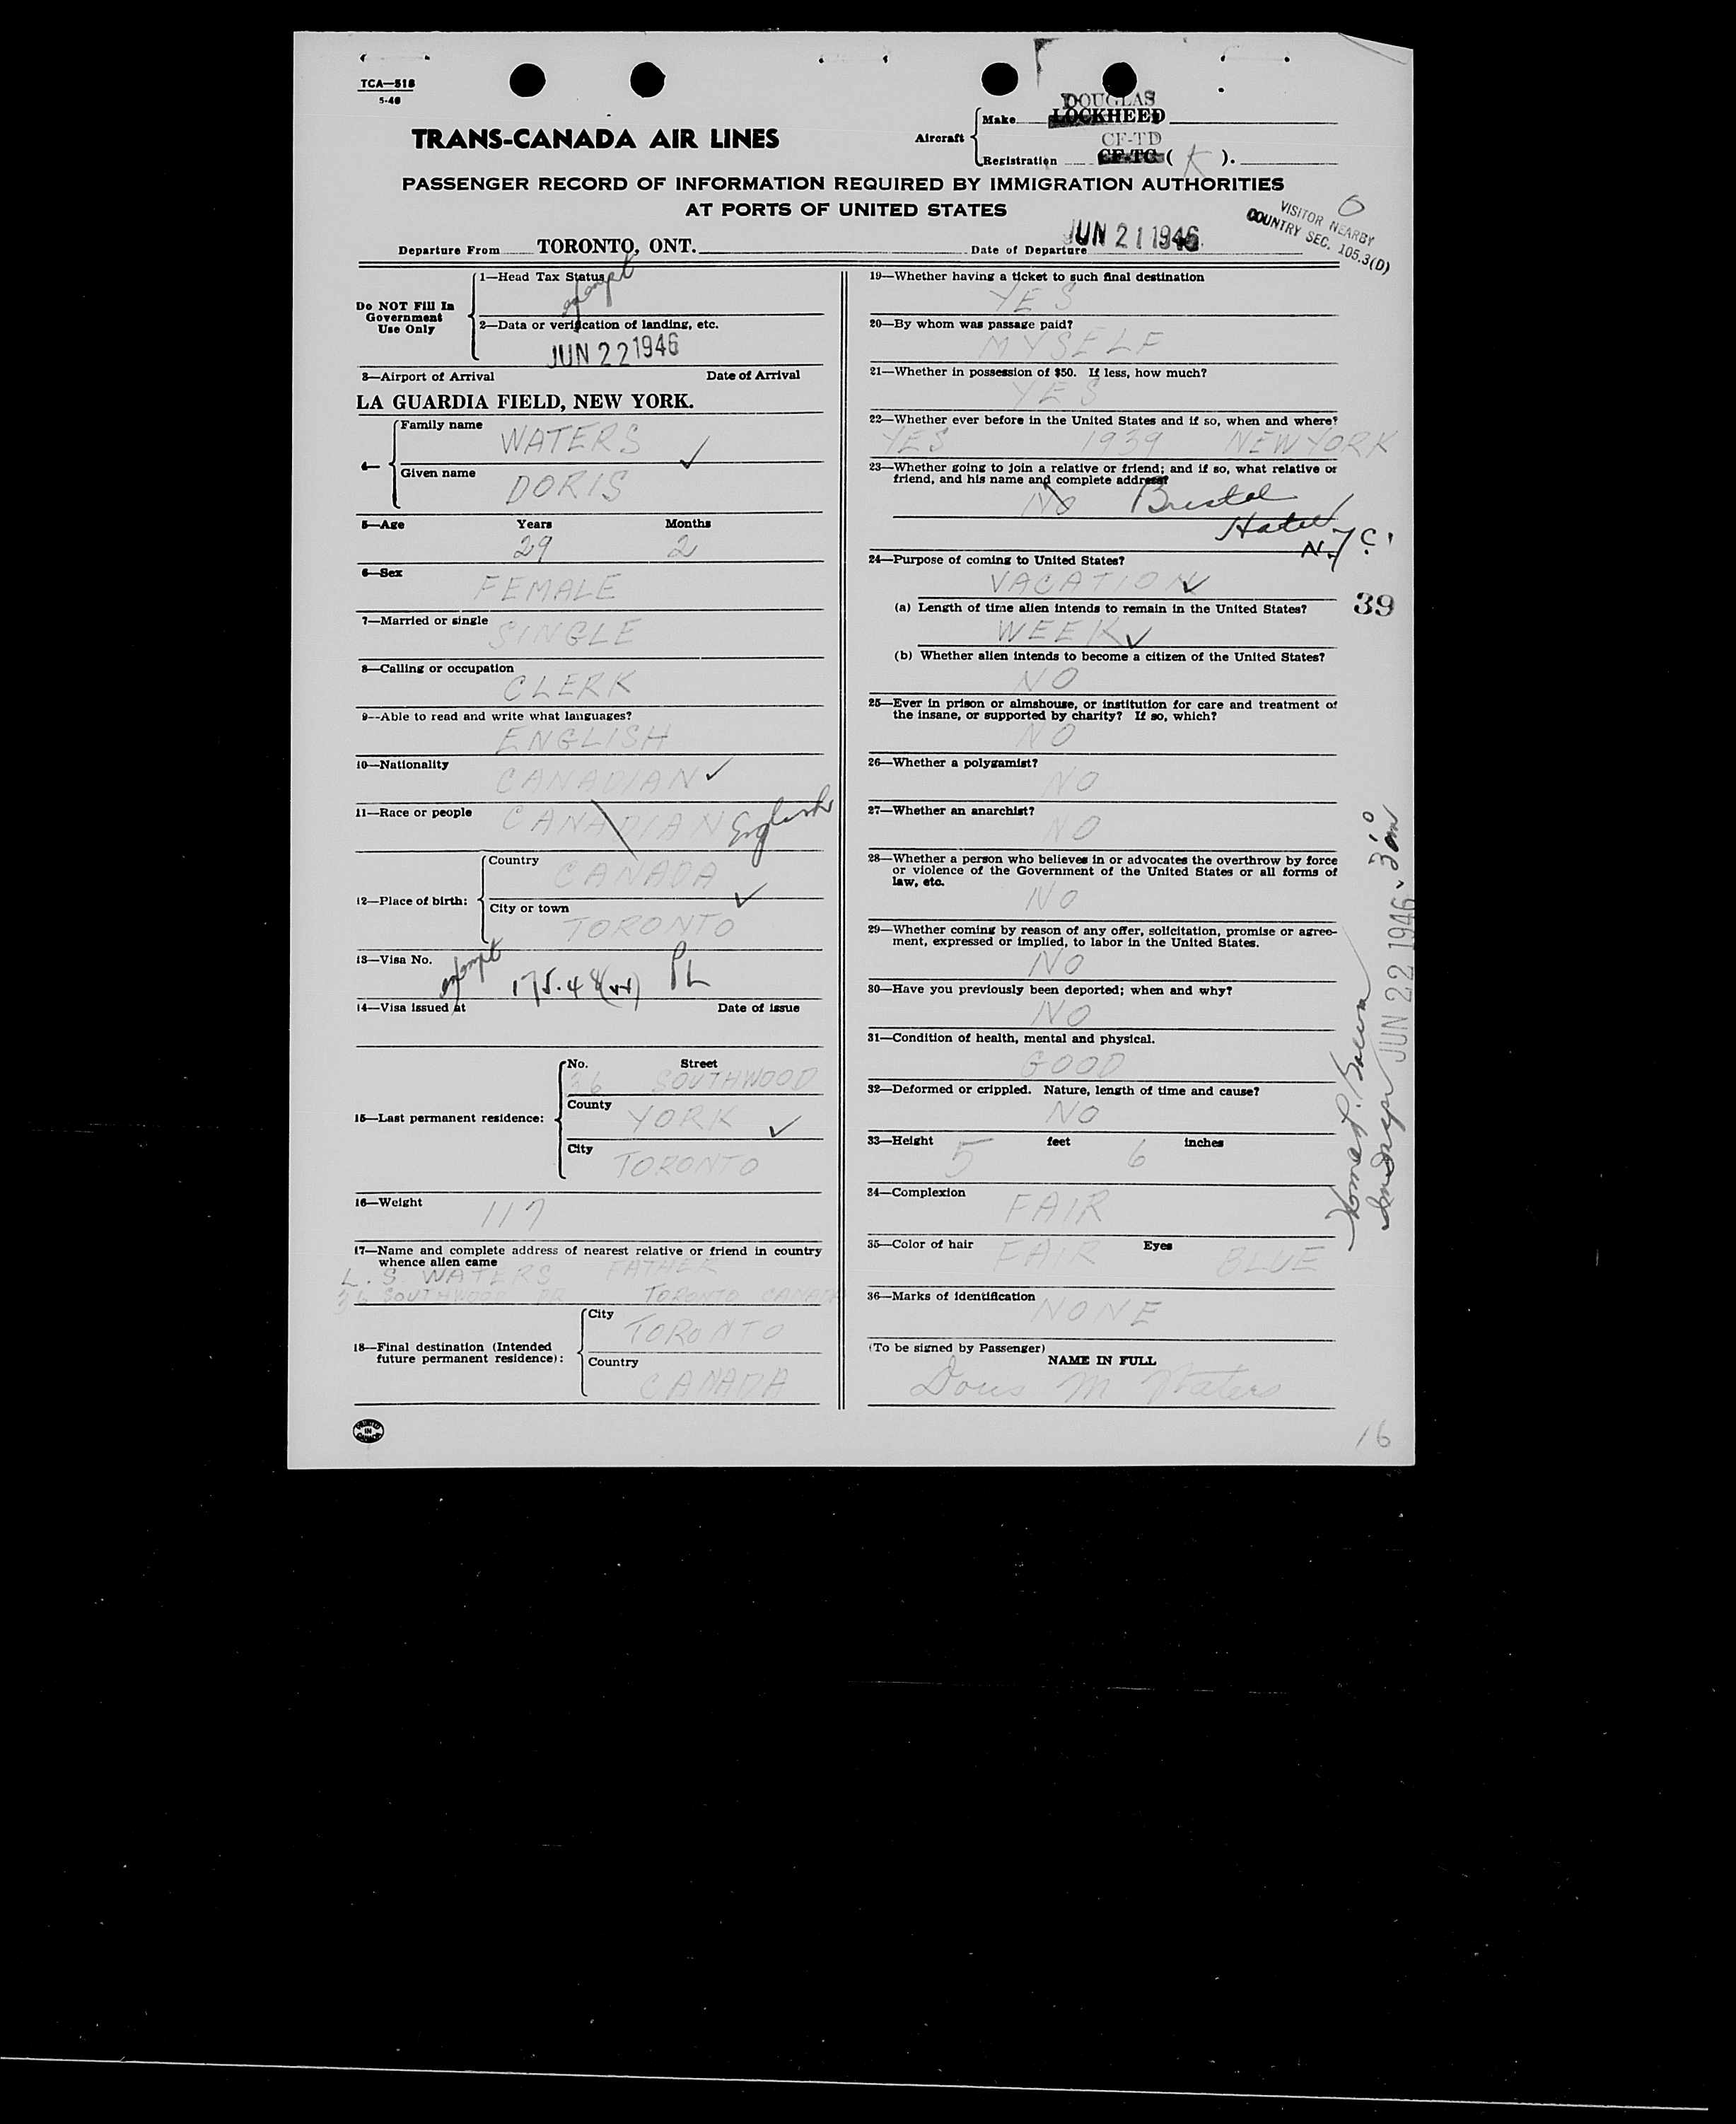 TCA—518
5-46
DOUGLAS
Make LOCKHEED
TRANS-CANADA AIR LINES
Aircraft
CF-TD
Registration CF-TC ( K ).
PASSENGER RECORD OF INFORMATION REQUIRED BY IMMIGRATION AUTHORITIES
AT PORTS OF UNITED STATES
VISITOR NEARBY
COUNTRY SEC. 105.3(D)
Departure From TORONTO, ONT. Date of Departure JUN 21 1946
Do NOT Fill In
Government
Use Only
1—Head Tax Status
exempt
2—Data or verification of landing, etc.
JUN 22 1946
3—Airport of Arrival Date of Arrival
LA GUARDIA FIELD, NEW YORK.
4—
Family name
WATERS
Given name
DORIS
5—Age Years Months
29 2
6—Sex
FEMALE
7—Married or single
SINGLE
8—Calling or occupation
CLERK
9—Able to read and write what languages?
ENGLISH
10—Nationality
CANADIAN
11—Race or people
CANADIAN English
12—Place of birth:
Country
CANADA
City or town
TORONTO
13—Visa No.
exempt 175.48 PL
14—Visa issued at Date of issue
15—Last permanent residence:
No. Street
36 SOUTHWOOD
County
YORK
City
TORONTO
16—Weight
117
17—Name and complete address of nearest relative or friend in country
whence alien came
L.S WATERS FATHER
36 SOUTHWOOD DR TORONTO CANADA
18—Final destination (Intended
future permanent residence):
City
TORONTO
Country
CANADA
PRINTED
IN
CANADA
19—Whether having a ticket to such final destination
YES
20—By whom was passage paid?
MYSELF
21—Whether in possession of $50. If less, how much?
YES
22—Whether ever before in the United States and if so, when and where?
YES 1939 NEW YORK
23—Whether going to join a relative or friend; and if so, what relative or
friend, and his name and complete address?
NO Bristol
Hotel
N.Y.C.
24—Purpose of coming to United States?
VACATION
(a) Length of time alien intends to remain in the United States?
39
WEEK
(b) Whether alien intends to become a citizen of the United States?
NO
25—Ever in prison or almshouse, or institution for care and treatment of
the insane, or supported by charity? If so, which?
NO
26—Whether a polygamist?
NO
27—Whether an anarchist?
NO
28—Whether a person who believes in or advocates the overthrow by force
or violence of the Government of the United States or all forms of
law, etc.
NO
29—Whether coming by reason of any offer, solicitation, promise or agree-
ment, expressed or implied, to labor in the United States.
NO
30—Have you previously been deported; when and why?
NO
31—Condition of health, mental and physical.
GOOD
32—Deformed or crippled. Nature, length of time and cause?
NO
33—Height 5 feet 6 inches
34—Complexion
FAIR
35—Color of hair FAIR Eyes BLUE
36—Marks of identification
NONE
(To be signed by Passenger)
NAME IN FULL
Doris M Waters
JUN 22 1946
16